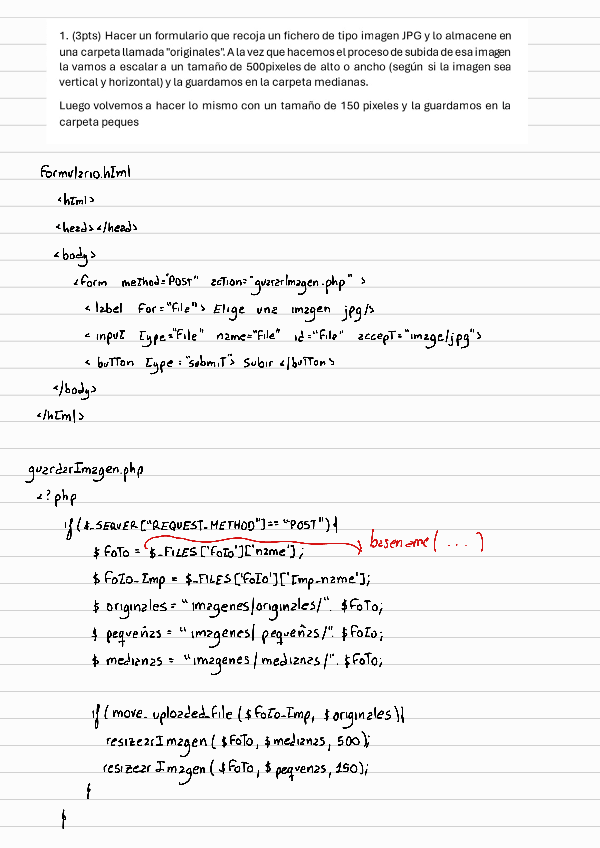 1. (3pts) Hacer un formulario que recoja un fichero de tipo imagen JPG y lo almacene en
una carpeta llamada "originales". A la vez que hacemos el proceso de subida de esa imagen
la vamos a escalar a un tamaño de 500pixeles de alto o ancho (según si la imagen sea
vertical y horizontal) y la guardamos en la carpeta medianas.
Luego volvemos a hacer lo mismo con un tamaño de 150 pixeles y la guardamos en la
carpeta peques
formulario.html
<html>
<head></head>
<body>
<form method="POST" action="guararImagen.php" >
<label for="file"> Elige una imagen jpg/>
<input type="file" name="file" id="file" accept="image/jpg">
<button type="submit"> Subir </button>
</body>
</html>
guardarImagen.php
<?php
if($_SERVER["REQUEST_METHOD"]== "POST"){
$foto = $_FILES['foto']['name']; basename( ... )
$foto_tmp = $_FILES['foto']['tmp_name'];
$originales = "imagenes/originales/". $foto;
$pequeñas = "imagenes/pequeñas/". $foto;
$medianas = "imagenes/medianas/". $foto;
if(move_uploaded_file($foto_tmp, $originales)){
resizearImagen($foto, $medianas, 500);
resizearImagen($foto, $pequenas, 150);
}
}